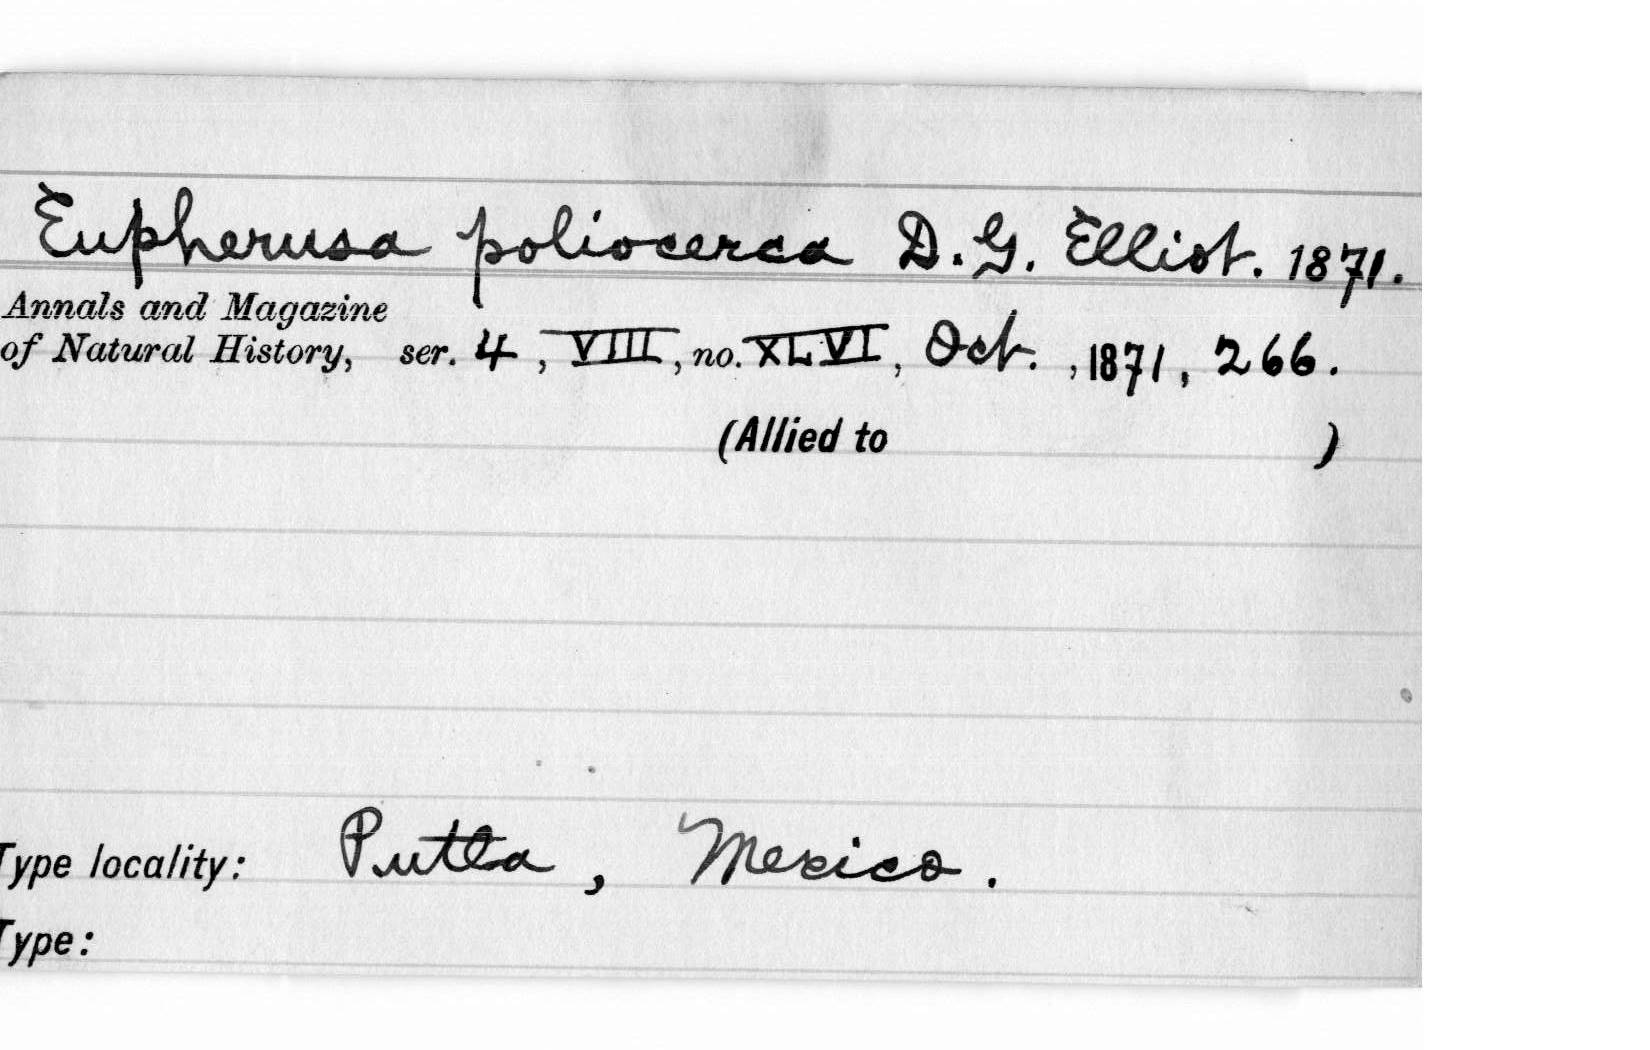 Eupherusa poliocerca D. G. Elliot. 1871.
Annals and Magazine
of Natural History, ser. 4, VIII, no. XLVI, Oct. , 1871, 266.
(Allied to )
Type locality: Putla, Mexico.
Type: